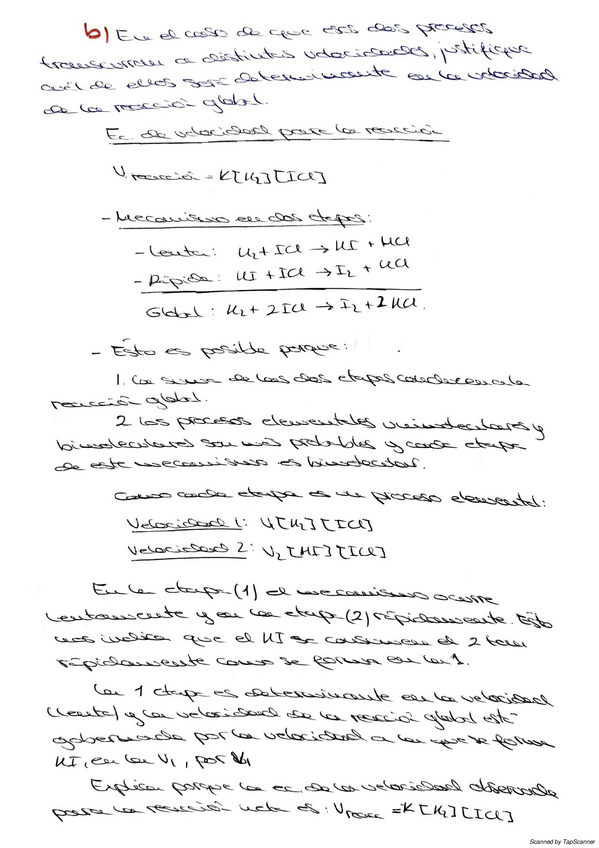 b) En el caso de que esos dos procesos
transcurran a distintas velocidades, justifique
cuál de ellos será determinante en la velocidad
de la reacción global.
Ec. de velocidad para la reacción
V reacción = K[H₂][ICl]
- Mecanismo en dos etapas:
- Lenta: H₂ + ICl → HI + HCl
- Rápida: HI + ICl → I₂ + HCl
Global: H₂ + 2 ICl → I₂ + 2 HCl.
- Ésto es posible porque:
1. La suma de las dos etapas conducen a la
reacción global.
2 Los procesos elementales unimoleculares y
bimoleculares son más probables y cada etapa
de este mecanismo es bimolecular.
Como cada etapa es un proceso elemental:
Velocidad 1: [H₂][ICl]
Velocidad 2: V₂[HI][ICl]
En la etapa (1) el mecanismo ocurre
lentamente y en la etapa (2) rápidamente. Ésto
nos indica que el HI se consume en el 2 tan
rápidamente como se forma en la 1.
La 1 etapa es determinante en la velocidad
(lenta) y la velocidad de la reacción global está
gobernada por la velocidad a la que se forma
HI, en la V₁, por V₁
Explica porque la ec. de la velocidad observada
para la reacción neta es: V reacc = K[H₂][ICl]
Scanned by TapScanner